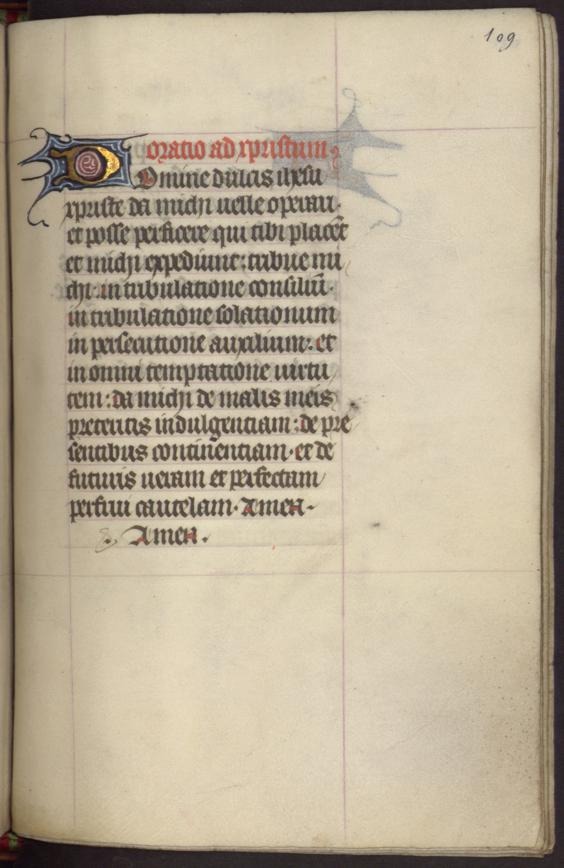 109
oratio ad xpristum
Domine dulcis ihesu
xpriste da michi uelle operari·
et posse perficere qui tibi placẽt
et michi expediunt: tribue mi
chi· in tribulatione consiliũ·
in tribulatione solationum
in persecutione auxilium: et
in omni temptatione uirtu
tem: da michi de malis meis
preteritis indulgentiam: de pre
sentibus continentiam· et de
futuris ueram et perfectam
perfrui cautelam· Amen·
Amen.